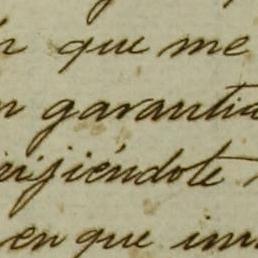 que me
garantia
rijiéndote
en que